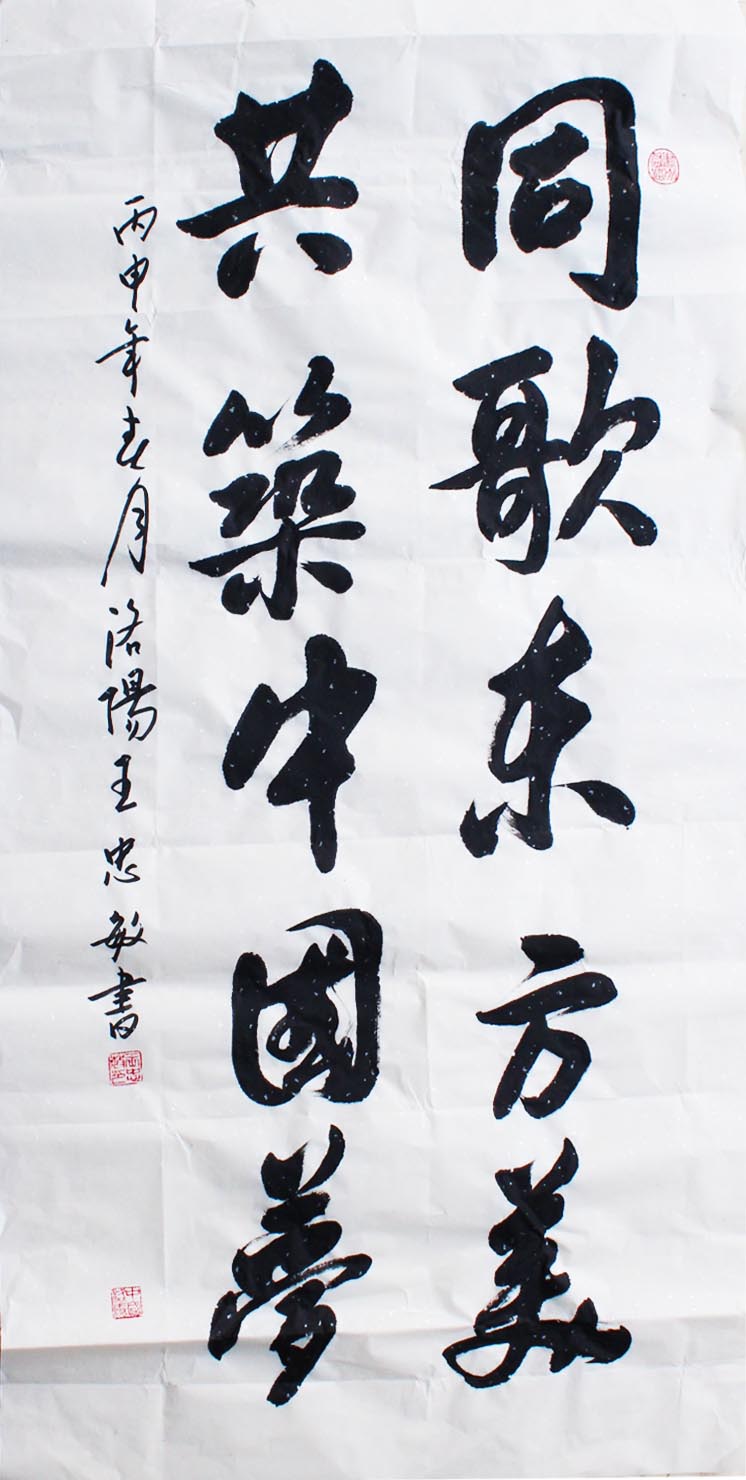 同歌东方美
共築中國夢
丙申年春月洛陽王忠敏書